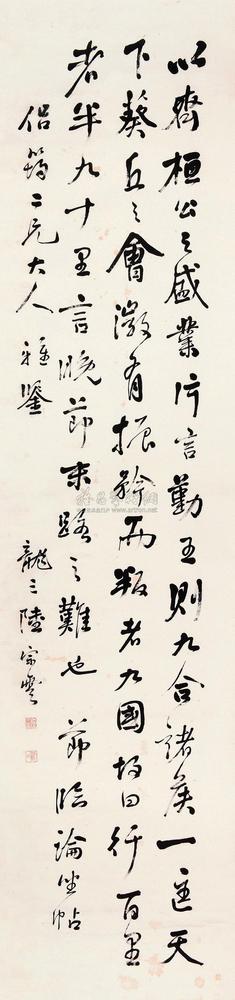 以齊桓公之盛業片言勤王則九合諸侯一匡天
下葵丘之會微有振矜而叛者九國故曰行百里
者半九十里言晚節末路之難也 節臨論坐帖
侣篛二兄大人雅鑒 龍三陸宗
www.artron.net